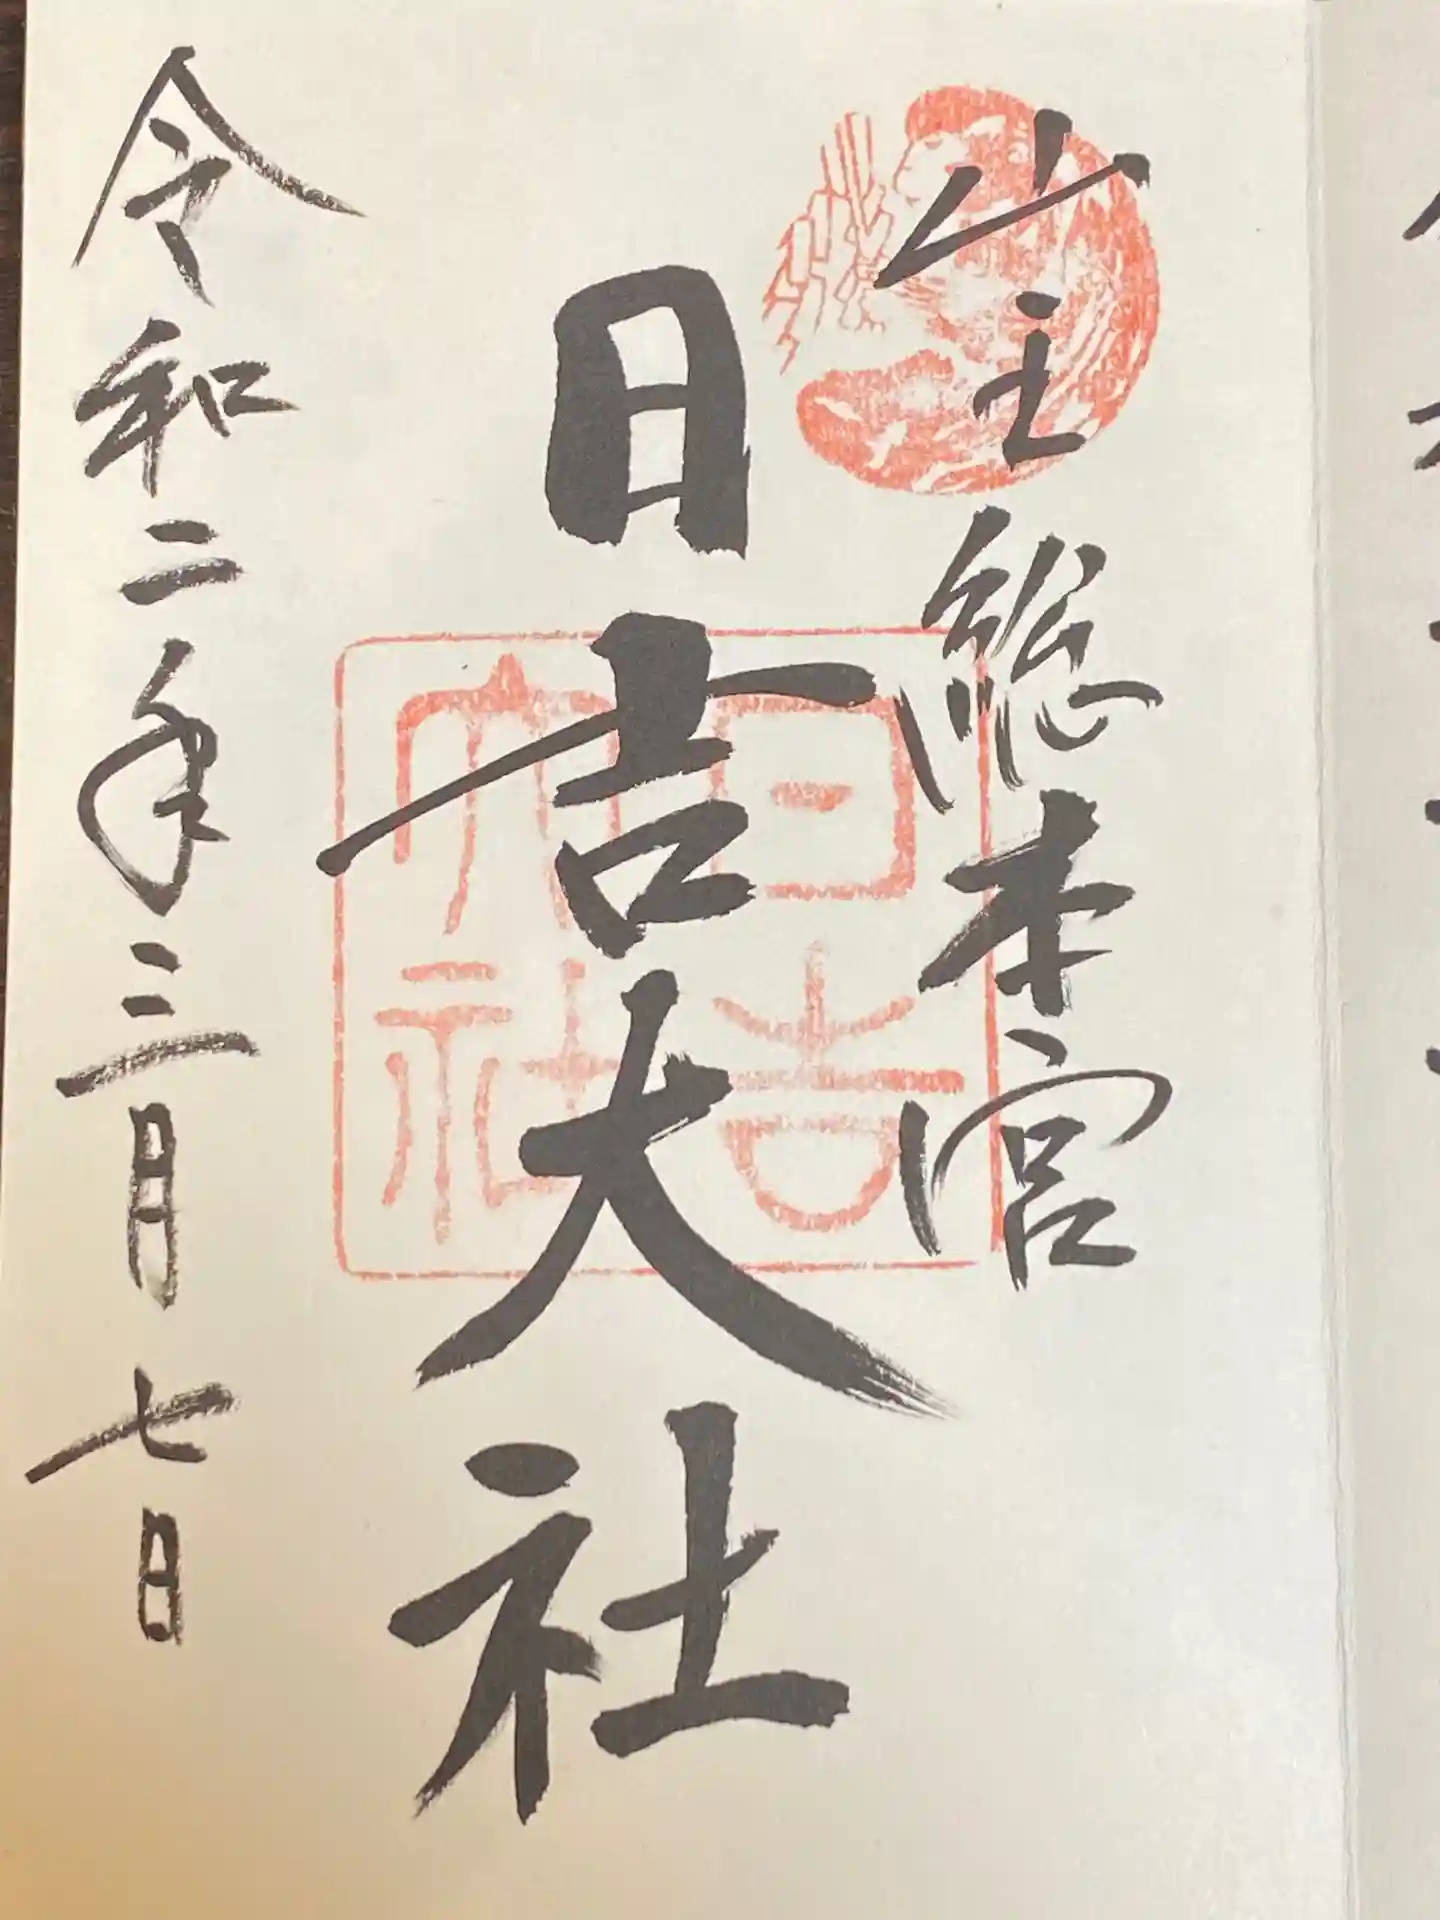 山王総本宮
日吉大社
日吉大社
令和二年三月七日